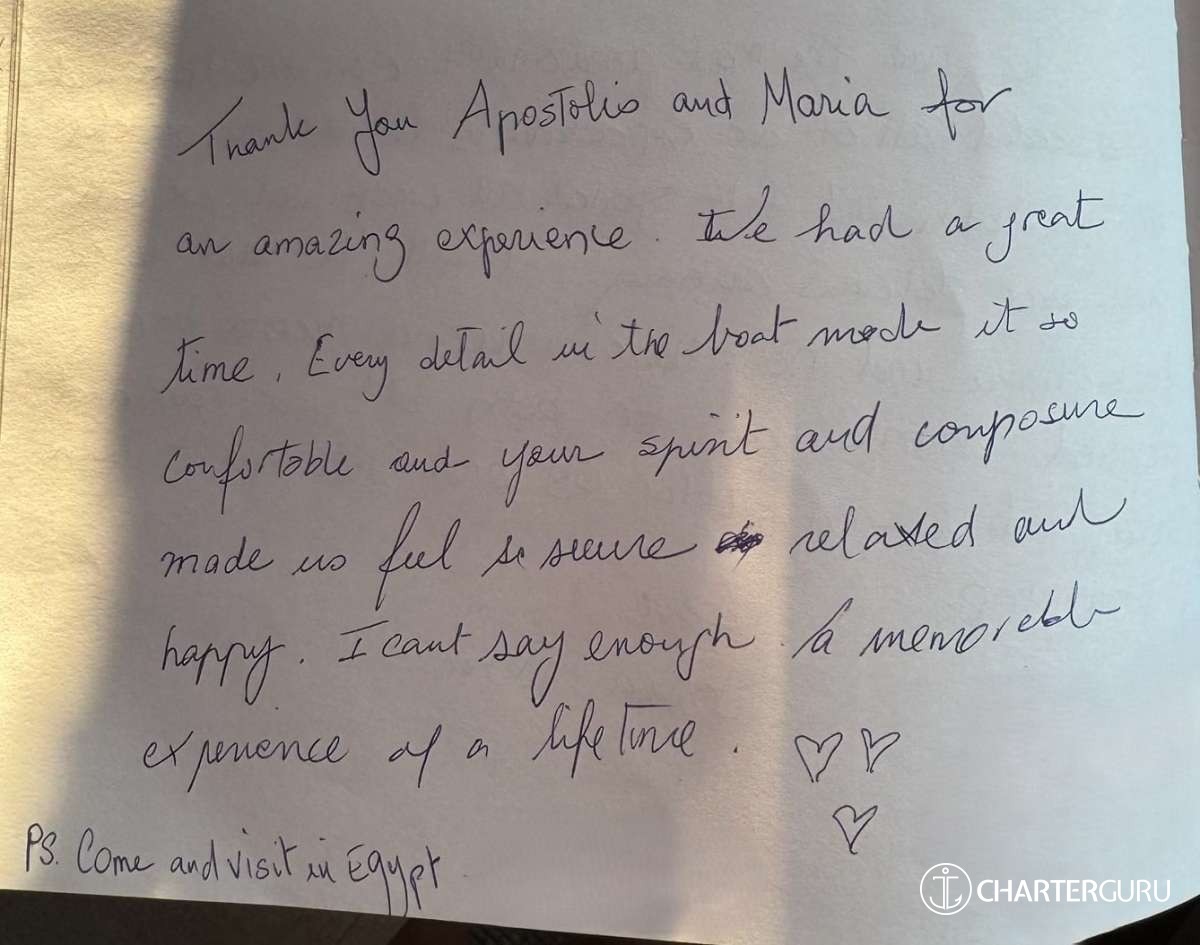 Thank You Apostolis and Maria for
an amazing experience. We had a great
time. Every detail in the boat made it so
confortable and your spirit and composure
made us feel so secure relaxed and
happy. I cant say enough. A memorable
experience of a life time.
PS. Come and visit in Egypt
CHARTERGURU